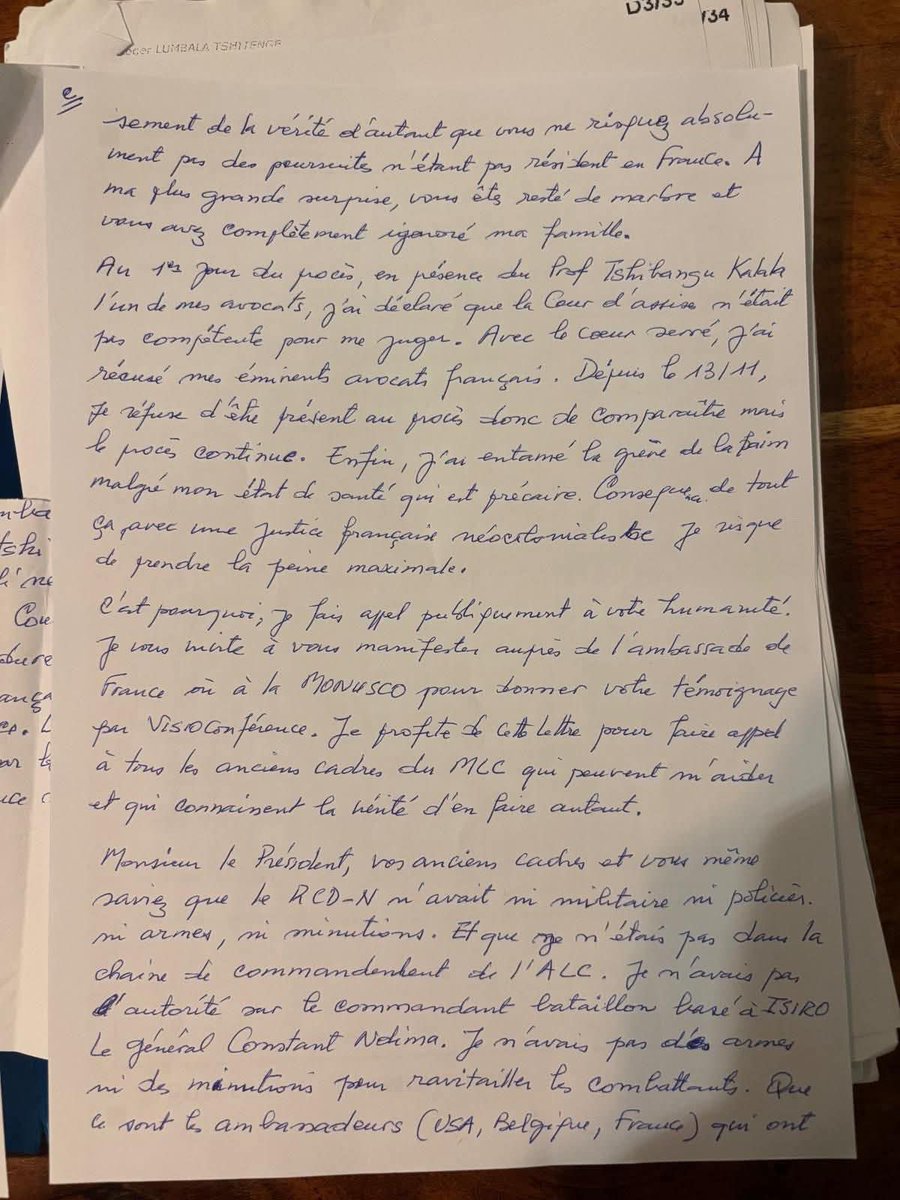 D3/33
/34
oger LUMBALA TSHITENGE
e
sement de la vérité d'autant que vous ne risquez absolu-
ment pas des poursuites n'étant pas résident en France. A
ma plus grande surprise, vous êtes resté de marbre et
vous avez complètement ignoré ma famille.
Au 1er jour du procès, en présence du Prof Tshibangu Kalala
l'un de mes avocats, j'ai déclaré que la Cour d'assise n'était
pas compétente pour me juger. Avec le cœur serré, j'ai
récusé mes éminents avocats français. Dépuis le 13/11,
Je réfuse d'être présent au procès donc de comparaître mais
le procès continue. Enfin, j'ai entamé la grève de la faim
malgré mon état de santé qui est précaire. Consequence de tout
ça, avec une Justice française néocolonialiste Je risque
de prendre la peine maximale.
C'est pourquoi, je fais appel publiquement à votre humanité.
Je vous invite à vous manifester auprès de l'ambassade de
France où à la MONUSCO pour donner votre témoignage
par Visioconférence. Je profite de cette lettre pour faire appel
à tous les anciens cadres du MLC qui peuvent m'aider
et qui connaissent la vérité d'en faire autant.
Monsieur le Président, vos anciens cadres et vous même
saviez que le RCD-N n'avait ni militaire ni policier.
ni armes, ni minutions. Et que je n'étais pas dans la
chaine de commandement de l'ALC. Je n'avais pas
d'autorité sur le commandant bataillon basé à ISIRO
Le général Constant Ndima. Je n'avais pas des armes
ni des minutions pour ravitailler les combattants. Que
ce sont les ambassadeurs (USA, Belgique, France) qui ont